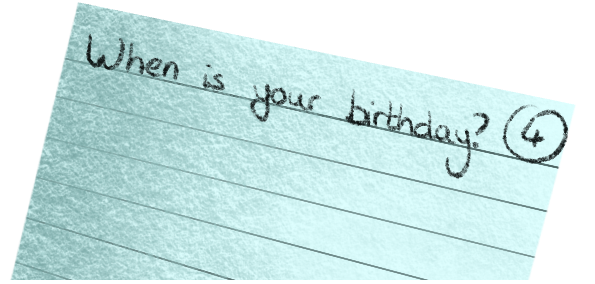 When is your birthday? 4